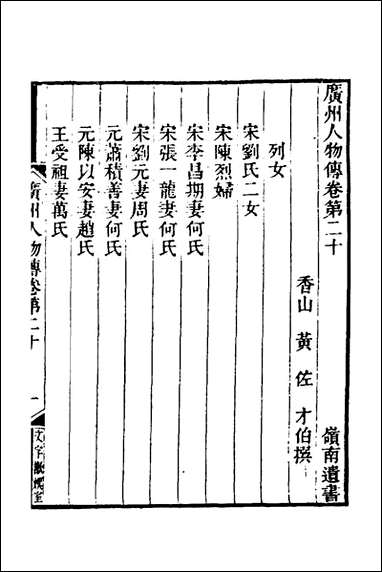 廣州人物傳卷第二十
嶺南遺書
香山 黃佐 才伯撰
列女
宋劉氏二女
宋陳烈婦
宋李昌期妻何氏
宋張一龍妻何氏
宋劉元妻周氏
元蕭積善妻何氏
元陳以安妻趙氏
王受祖妻萬氏
廣州人物傳卷第二十
一
文字歡娛室